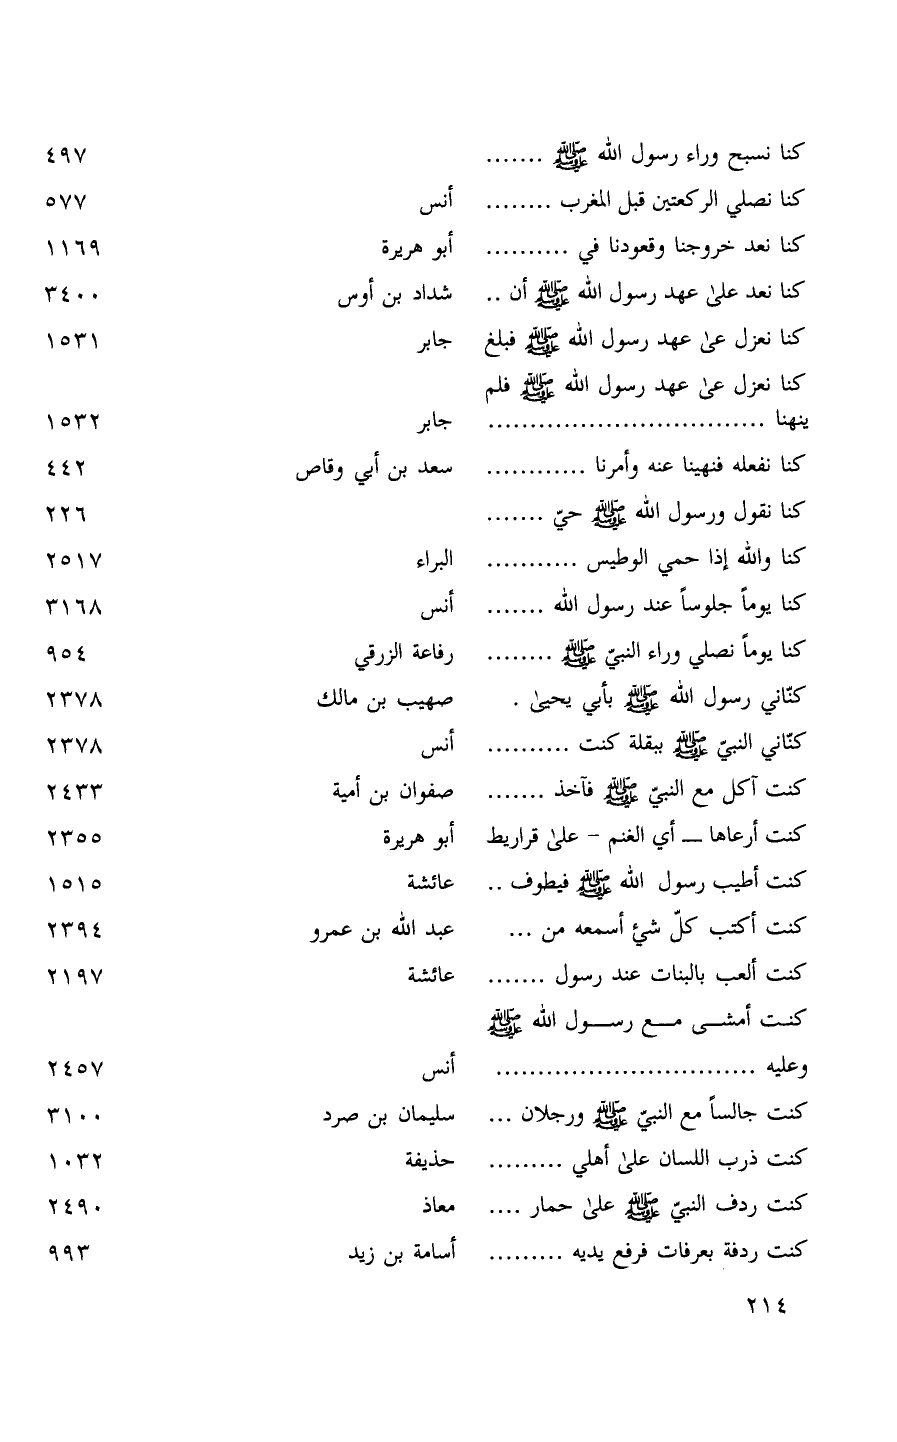 كنا نسبح وراء رسول الله ﷺ ....... ٤٩٧
كنا نصلي الركعتين قبل المغرب ........ أنس ٥٧٧
كنا نعد خروجنا وقعودنا في .......... أبو هريرة ١١٦٩
كنا نعد علىٰ عهد رسول الله ﷺ أن .. شداد بن أوس ٣٤٠٠
كنا نعزل عىٰ عهد رسول الله ﷺ فبلغ جابر ١٥٣١
كنا نعزل عىٰ عهد رسول الله ﷺ فلم
ينهنا ................................. جابر ١٥٣٢
كنا نفعله فنهينا عنه وأمرنا ............ سعد بن أبي وقاص ٤٤٢
كنا نقول ورسول الله ﷺ حيّ ....... ٢٢٦
كنا والله إذا حمي الوطيس ........... البراء ٢٥١٧
كنا يوماً جلوساً عند رسول الله ....... أنس ٣١٦٨
كنا يوماً نصلي وراء النبيّ ﷺ ........ رفاعة الزرقي ٩٥٤
كنّاني رسول الله ﷺ بأبي يحيىٰ . صهيب بن مالك ٢٣٧٨
كنّاني النبيّ ﷺ ببقلة كنت .......... أنس ٢٣٧٨
كنت آكل مع النبيّ ﷺ فآخذ ....... صفوان بن أمية ٢٤٣٣
كنت أرعاها ــ أي الغنم - علىٰ قراريط أبو هريرة ٢٣٥٥
كنت أطيب رسول الله ﷺ فيطوف .. عائشة ١٥١٥
كنت أكتب كلّ شئ أسمعه من ... عبد الله بن عمرو ٢٣٩٤
كنت ألعب بالبنات عند رسول ....... عائشة ٢١٩٧
كنـت أمشـــى مـــع رســـول الله ﷺ
وعليه ............................... أنس ٢٤٥٧
كنت جالساً مع النبيّ ﷺ ورجلان ... سليمان بن صرد ٣١٠٠
كنت ذرب اللسان علىٰ أهلي ......... حذيفة ١٠٣٢
كنت ردف النبيّ ﷺ علىٰ حمار .... معاذ ٢٤٩٠
كنت ردفة بعرفات فرفع يديه ......... أسامة بن زيد ٩٩٣
٢١٤